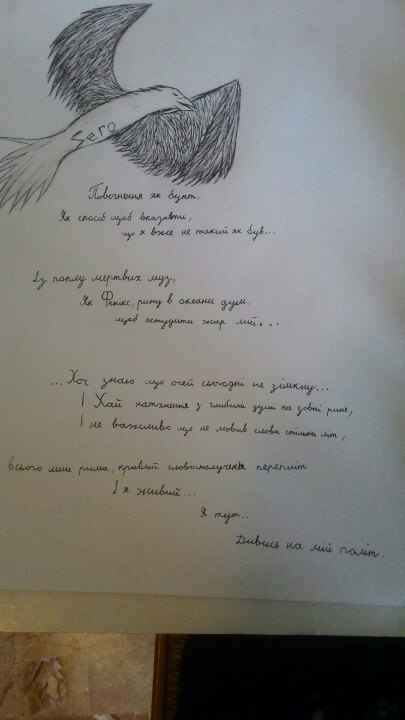 Sero
Повернення як бунт,
Як спосіб щоб вказати,
що я вже не такий як був...
Із попелу мертвих муз,
Як Фенікс, рину в океани дум,
щоб остудити жар мій...
...Хоч знаю що очей сьогодні не зімкну...
І Хай натхнення з глибини душі на зовні рине,
І не важливо що не мовив слова стільки літ,
всього лиш рима, кривий словосполучень переплёт
І я живий...
Я тут..
Дивись на мій політ.